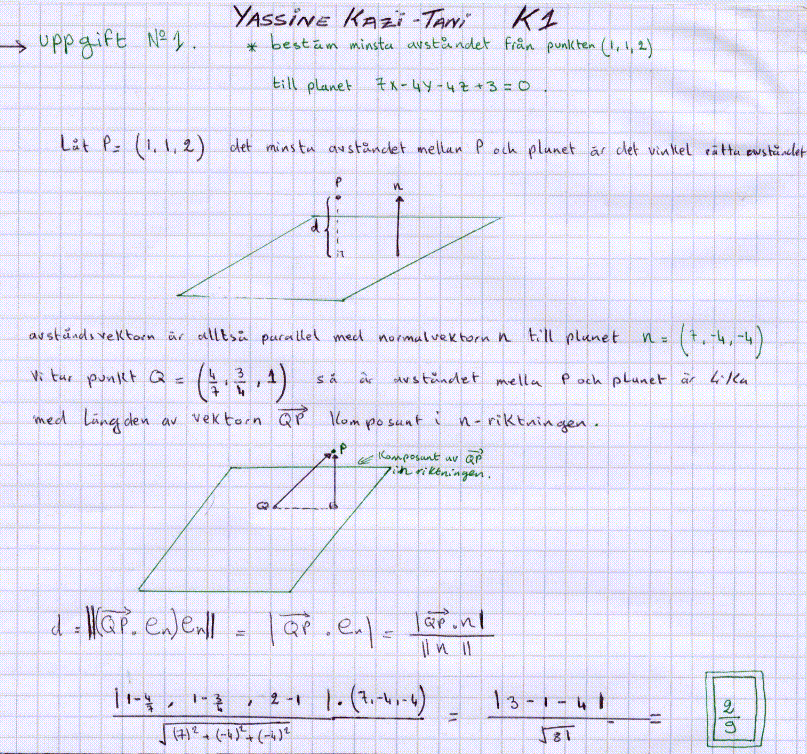 YASSINE KAZI-TANI K1
→ uppgift Nº1. * bestäm minsta avståndet från punkten (1,1,2)
till planet 7x-4y-4z+3=0.
Låt P= (1,1,2) det minsta avståndet mellan P och planet är det vinkel rätta avståndet
P n
d
avståndsvektorn är alltså parallel med normalvektorn n till planet n= (7,-4,-4)
Vi tar punkt Q = (4/7, 3/4, 1) så är avståndet mella P och planet är lika
med längden av vektorn QP→ Komposant i n-riktningen.
P
Komposant av QP→
i n riktningen.
Q
d = ||(QP→ . en)en|| = |QP→ . en| = |QP→ . n| / ||n||
|1-4/7 , 1-3/4 , 2-1 | . (7,-4,-4) / √(7)²+(-4)²+(-4)² = |3-1-4| / √81 = 2/9